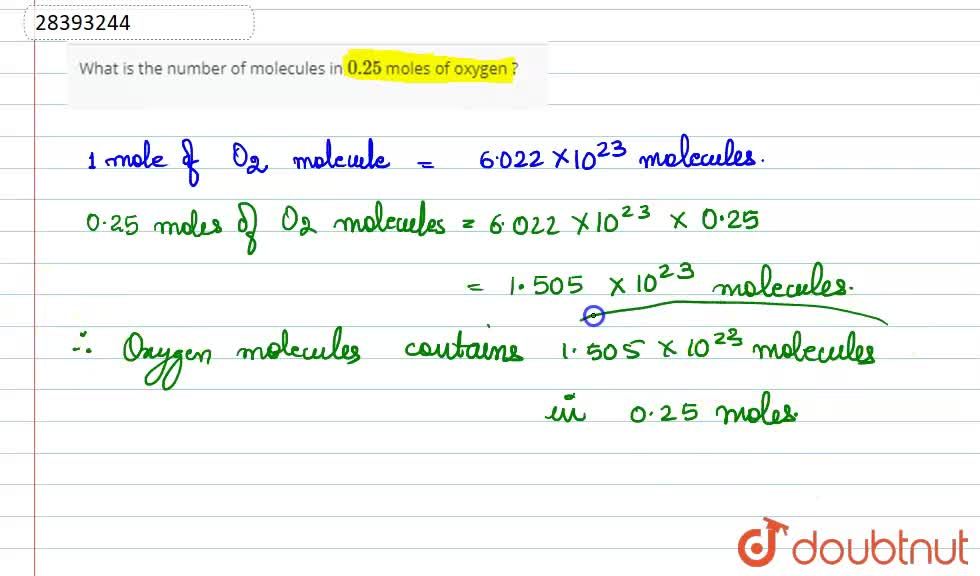 28393244
What is the number of molecules in 0.25 moles of oxygen ?
1 mole of O2 molecule = 6.022 × 10^23 molecules.
0.25 moles of O2 molecules = 6.022 × 10^23 × 0.25
= 1.505 × 10^23 molecules.
∴ Oxygen molecules contains 1.505 × 10^23 molecules
in 0.25 moles.
doubtnut